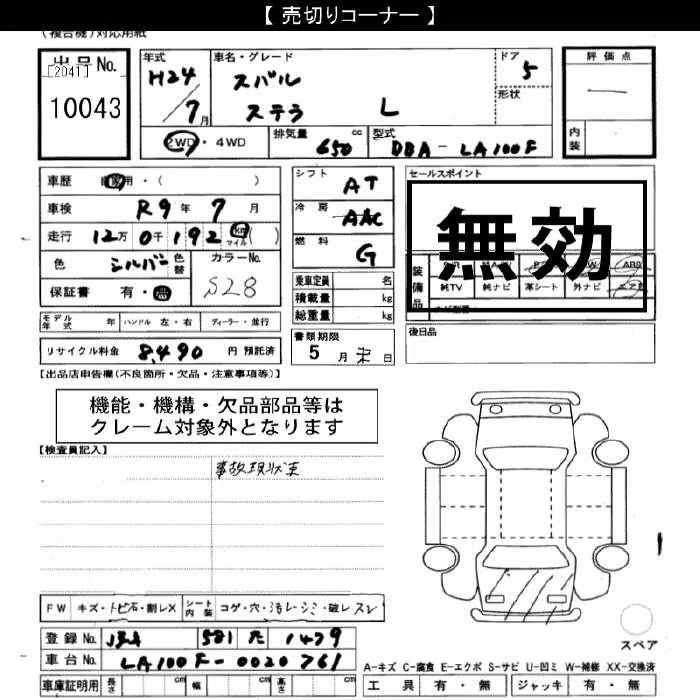 【 売切りコーナー 】
(複合機)対応用紙
出品No.
[2041]
10043
年式
H24/7月
車名・グレード
スバル
ステラ L
ドア
5
形状
評価点
内装
2WD・4WD
排気量 650 cc
型式 DBA-LA100F
車歴 自家用・( )
車検 R9年7月
走行 12万0千192 km マイル ( )
色 シルバー 色替
カラーNo.
S28
保証書 有・無
シフト AT
冷房 AAC
燃料 G
乗車定員 名
積載量 kg
総重量 kg
セールスポイント
無効
装備品
ABS
純TV 純ナビ 革シート 外ナビ エアB
モデル年式 年 ハンドル 左・右 ディーラー・並行
書類期限
5月末日
後日品
リサイクル料金 8,490 円 預託済
【出品店申告欄(不良箇所・欠品・注意事項等)】
機能・機構・欠品部品等は
クレーム対象外となります
【検査員記入】
事故現状車
FW キズ・トビ石・割レX シート内装 コゲ・穴・汚レ・シミ・破レ・スレ
登録No. 581 1479
車台No. LA100F-0020761
スペア
A-キズ C-腐食 E-エクボ S-サビ U-凹ミ W-補修 XX-交換済
車庫証明用 長さ cm 幅 cm 高さ cm
工具 有・無 ジャッキ 有・無